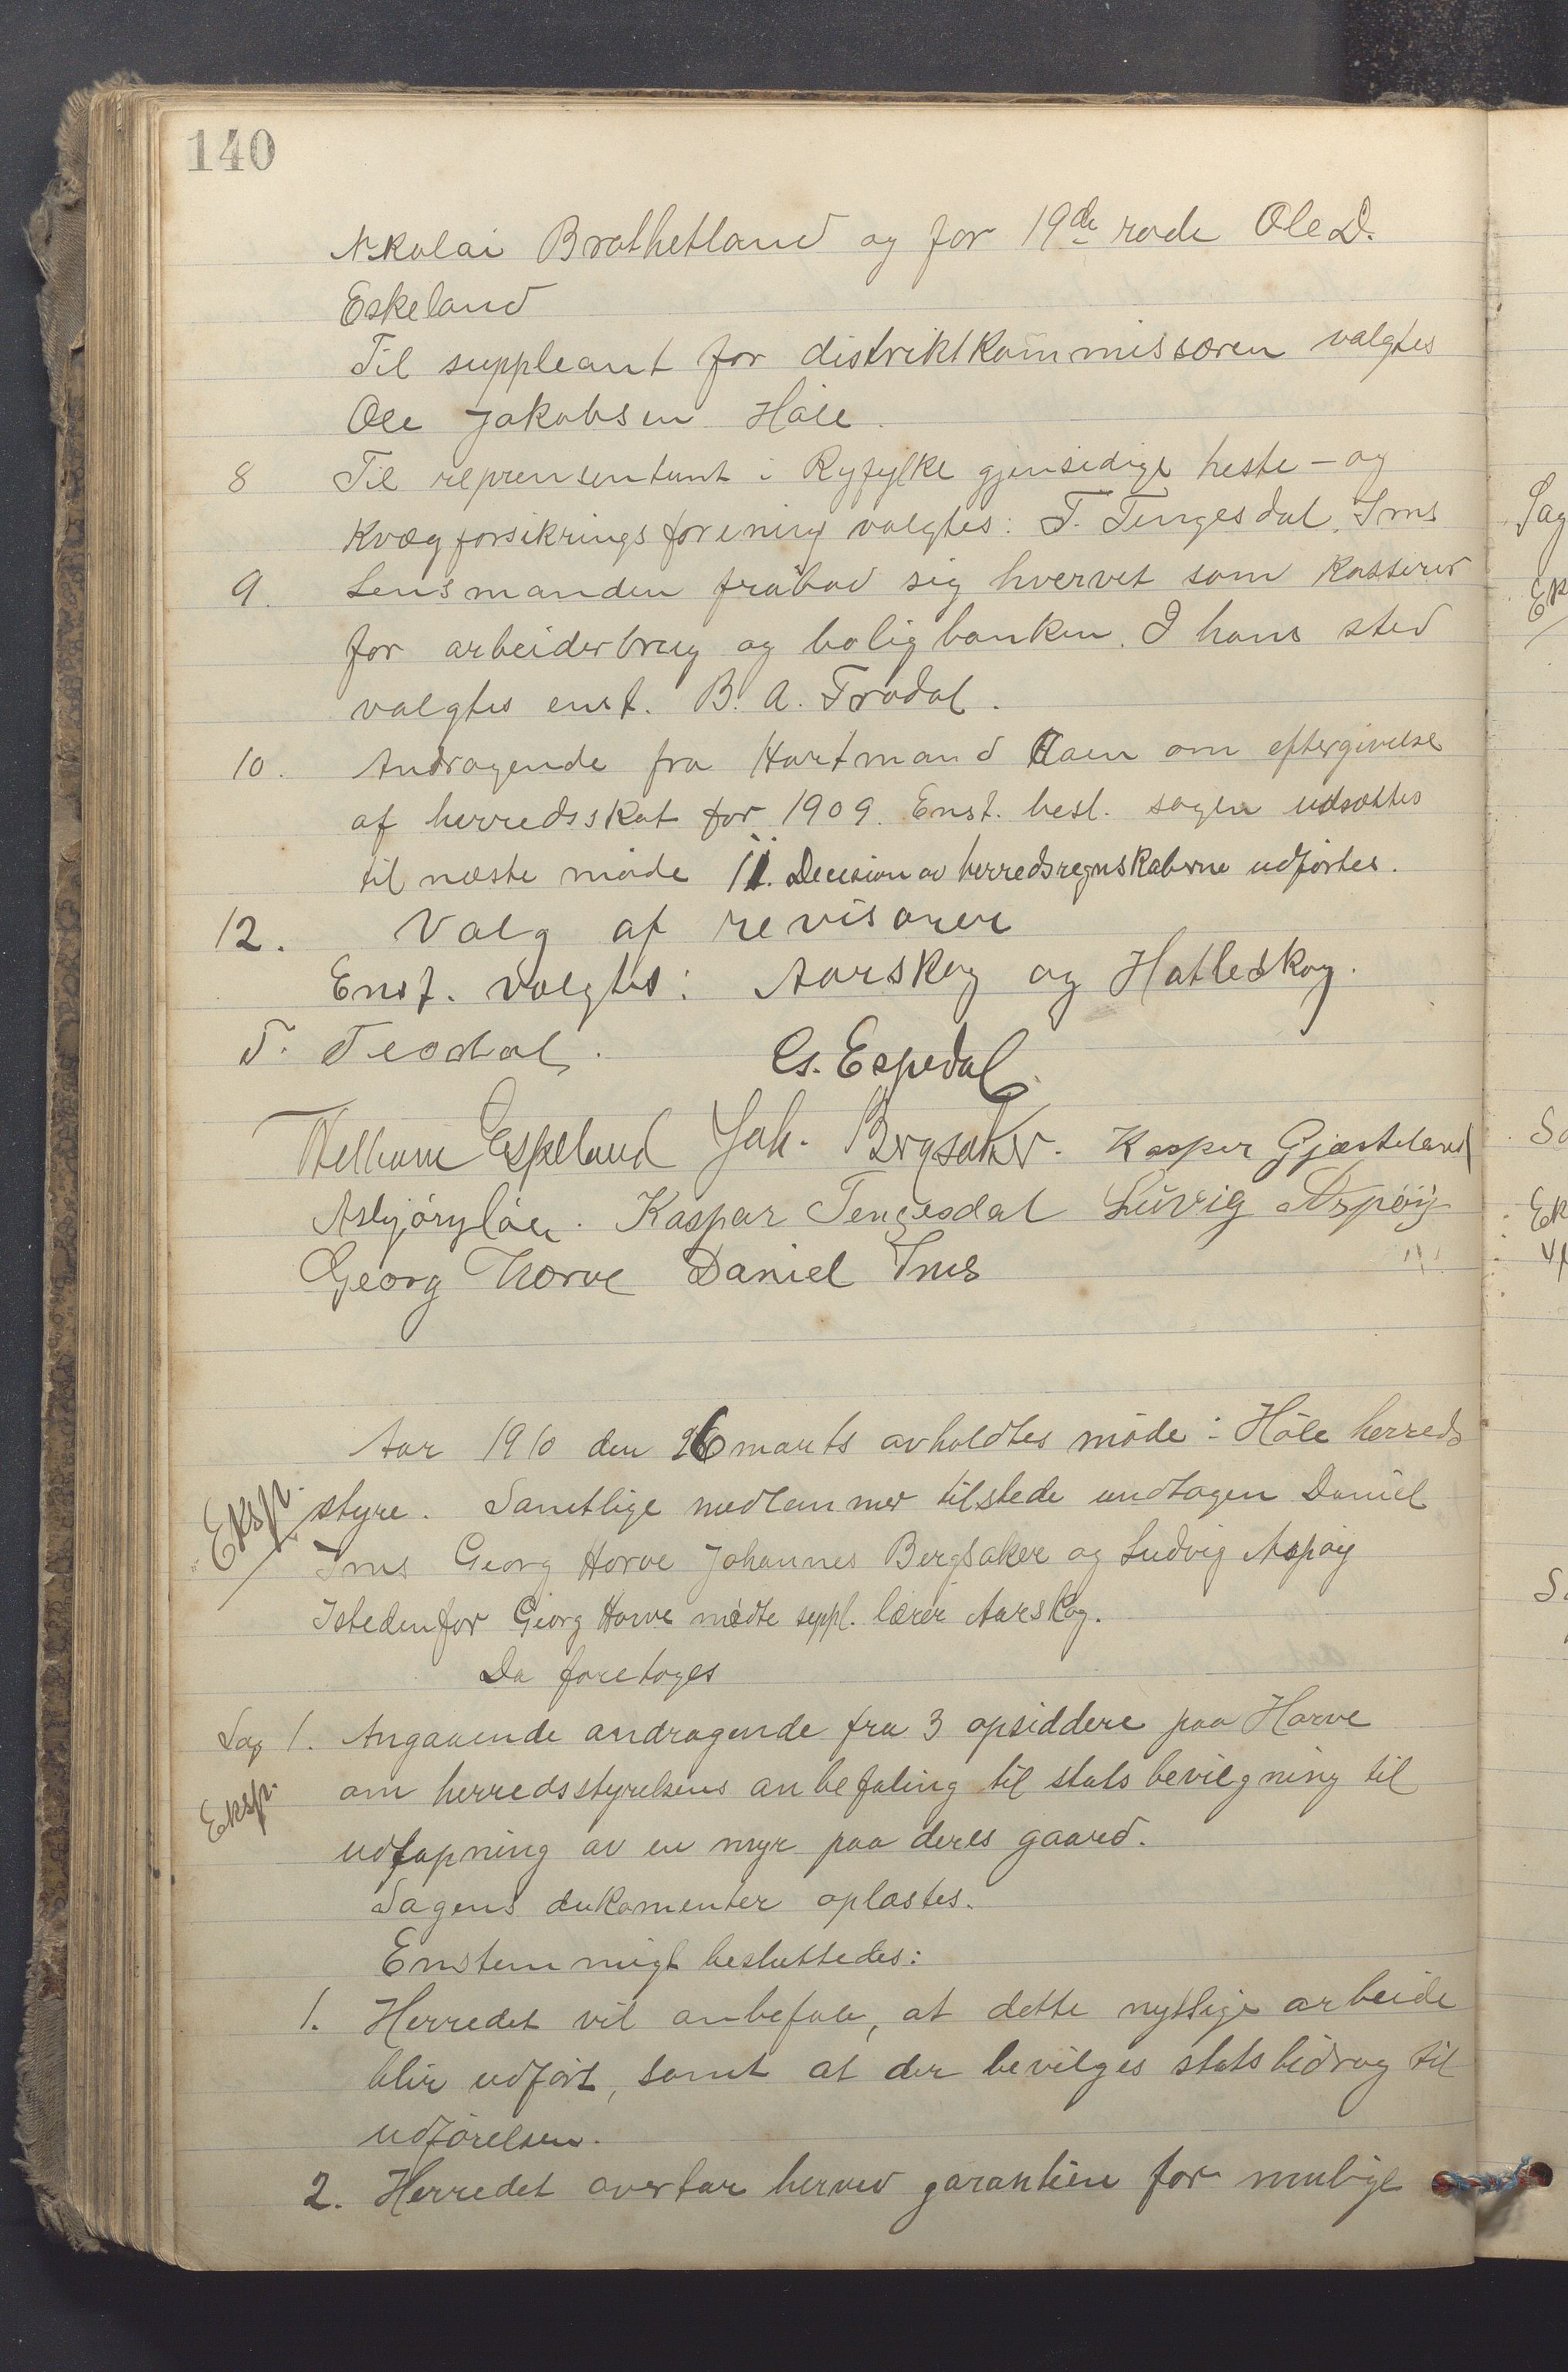 140
Nikolai Brathetland og for 19de rode Ole D.
Eskeland
Til suppleant for distriktkommissæren valgtes
Ole Jakobsen Høle.
8 Til reprensentant i Ryfylke gjensidige heste- og
kvægforsikringsforening valgtes: T. Tengesdal, Ims
9. Lensmanden frabad sig hvervet som kasserer
for arbeiderbrug og boligbanken. I hans sted
valgtes enst. B. A. Frødal.
10. Andragende fra Hartmand om eftergivelse
af herredsskat for 1909. Enst. besl. sagen udsættes
til næste møde 11. Decision av herredsregnskaberne udførtes.
12. Valg af revisorer
Enst. valgtes: Aarskog og Hatleskog.
T. Tesdal. Cs. Espedal.
Eskeland Joh. Bergsaker. Kasper Gjesteland
Kaspar Tengesdal Ludvig Aspøy
Georg Horve Daniel Ims
Aar 1910 den 26 marts avholdtes møde i Høle herreds
Eksp. styre. Samtlige medlemmer tilstede undtagen Daniel
Ims Georg Horve Johannes Bergsaker og Ludvig Aspøy
Istedenfor Georg Horve mødte suppl. lærer Aarskog.
Da foretoges
Sag 1. Angaaende andragende fra 3 opsiddere paa Horve
Eksp. om herredsstyrelsens anbefaling til statsbevilgning til
udtapning av en myr paa deres gaard.
Sagens dokumenter oplæstes.
Enstemmigt besluttedes:
1. Herredet vil anbefale, at dette nyttige arbeide
blir udført, samt at der bevilges statsbidrag til
udførelsen.
2. Herredet overtar herved garantien for mulige